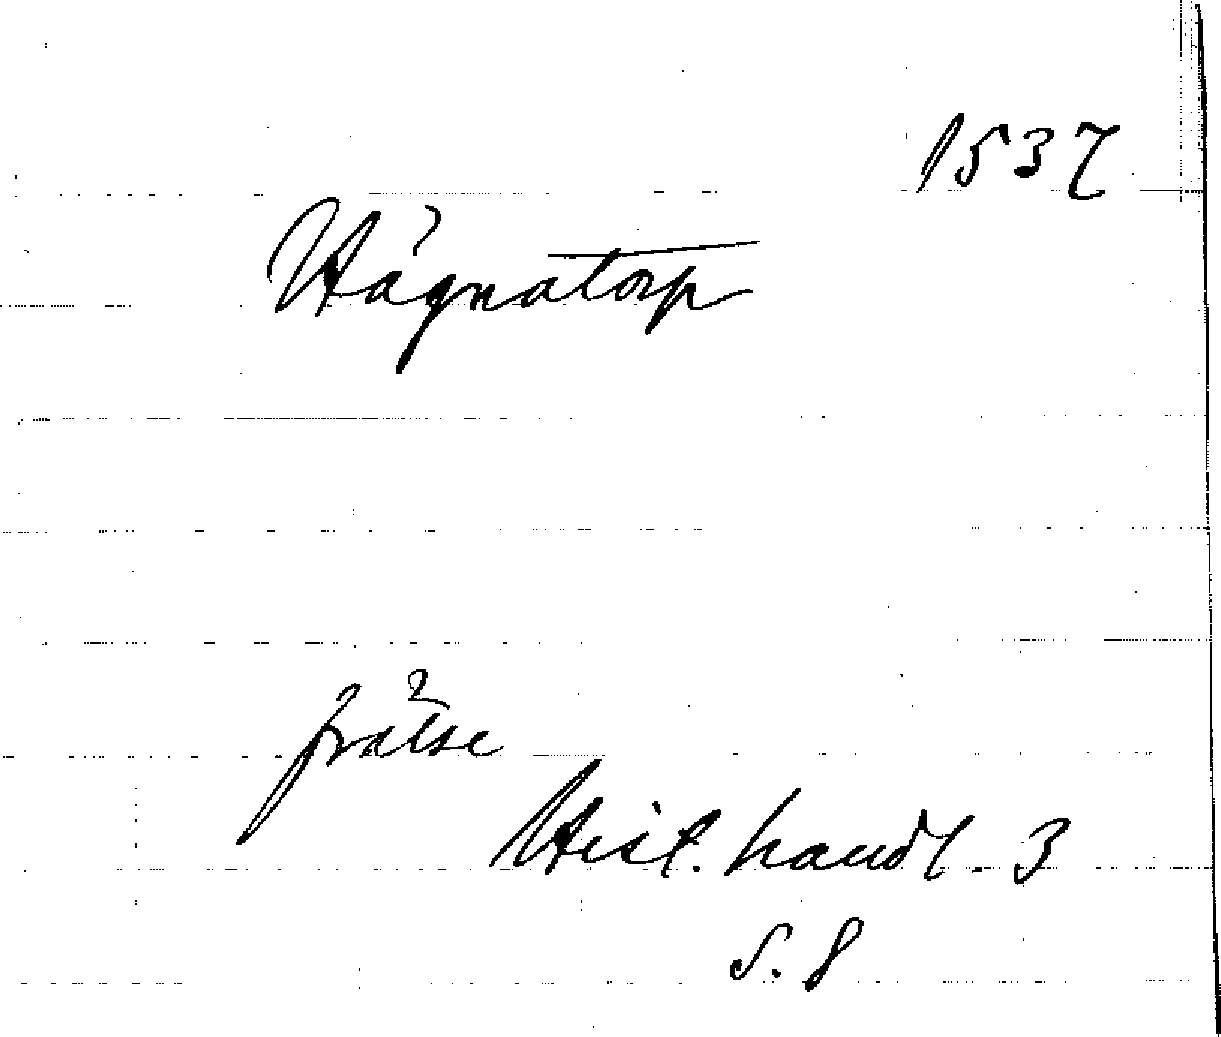 1537
Hågnatorp
frälse
Hist. handl. 3
s. 8